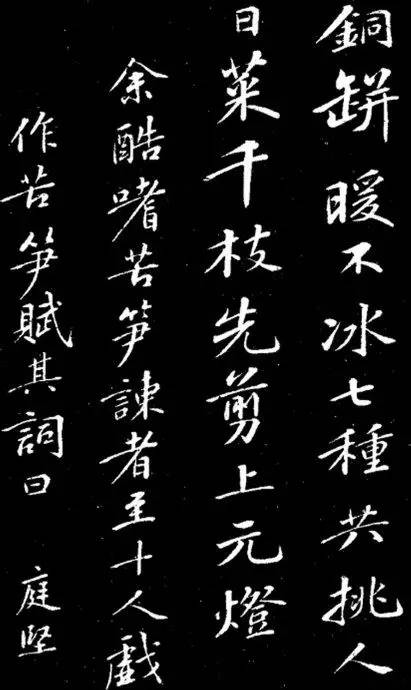 銅缾暖不冰七種共挑人
日菜千枝先剪上元燈
余酷嗜苦笋諫者至十人戲
作苦笋賦其詞曰
庭堅